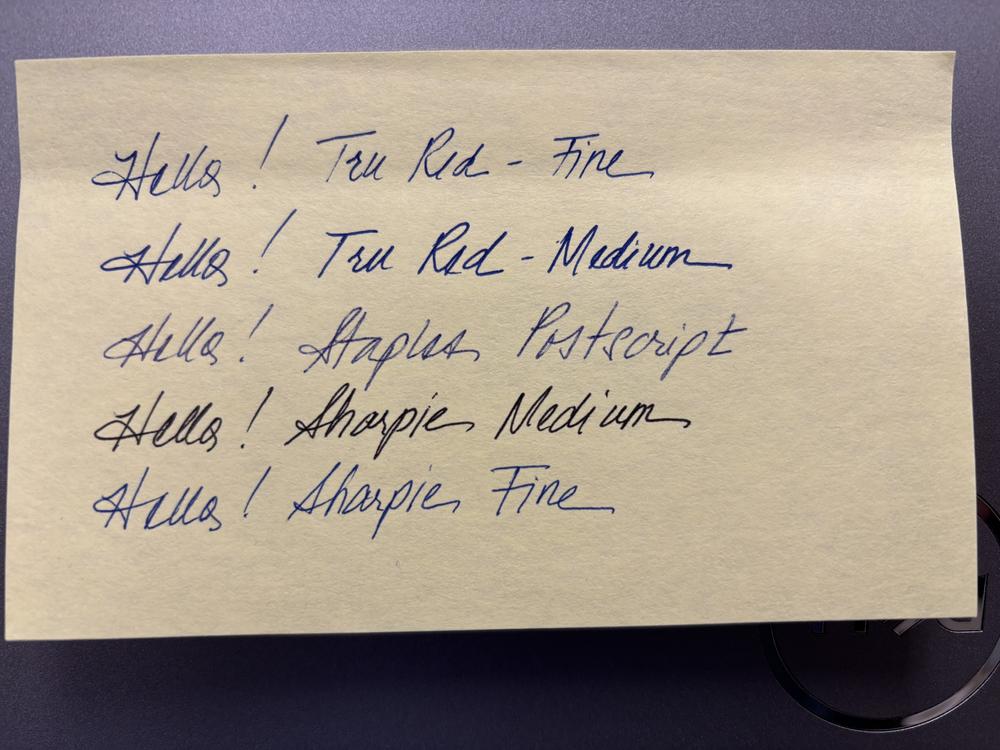 Hello! Tru Red - Fine
Hello! Tru Red - Medium
Hello! Staples Postscript
Hello! Sharpie Medium
Hello! Sharpie Fine